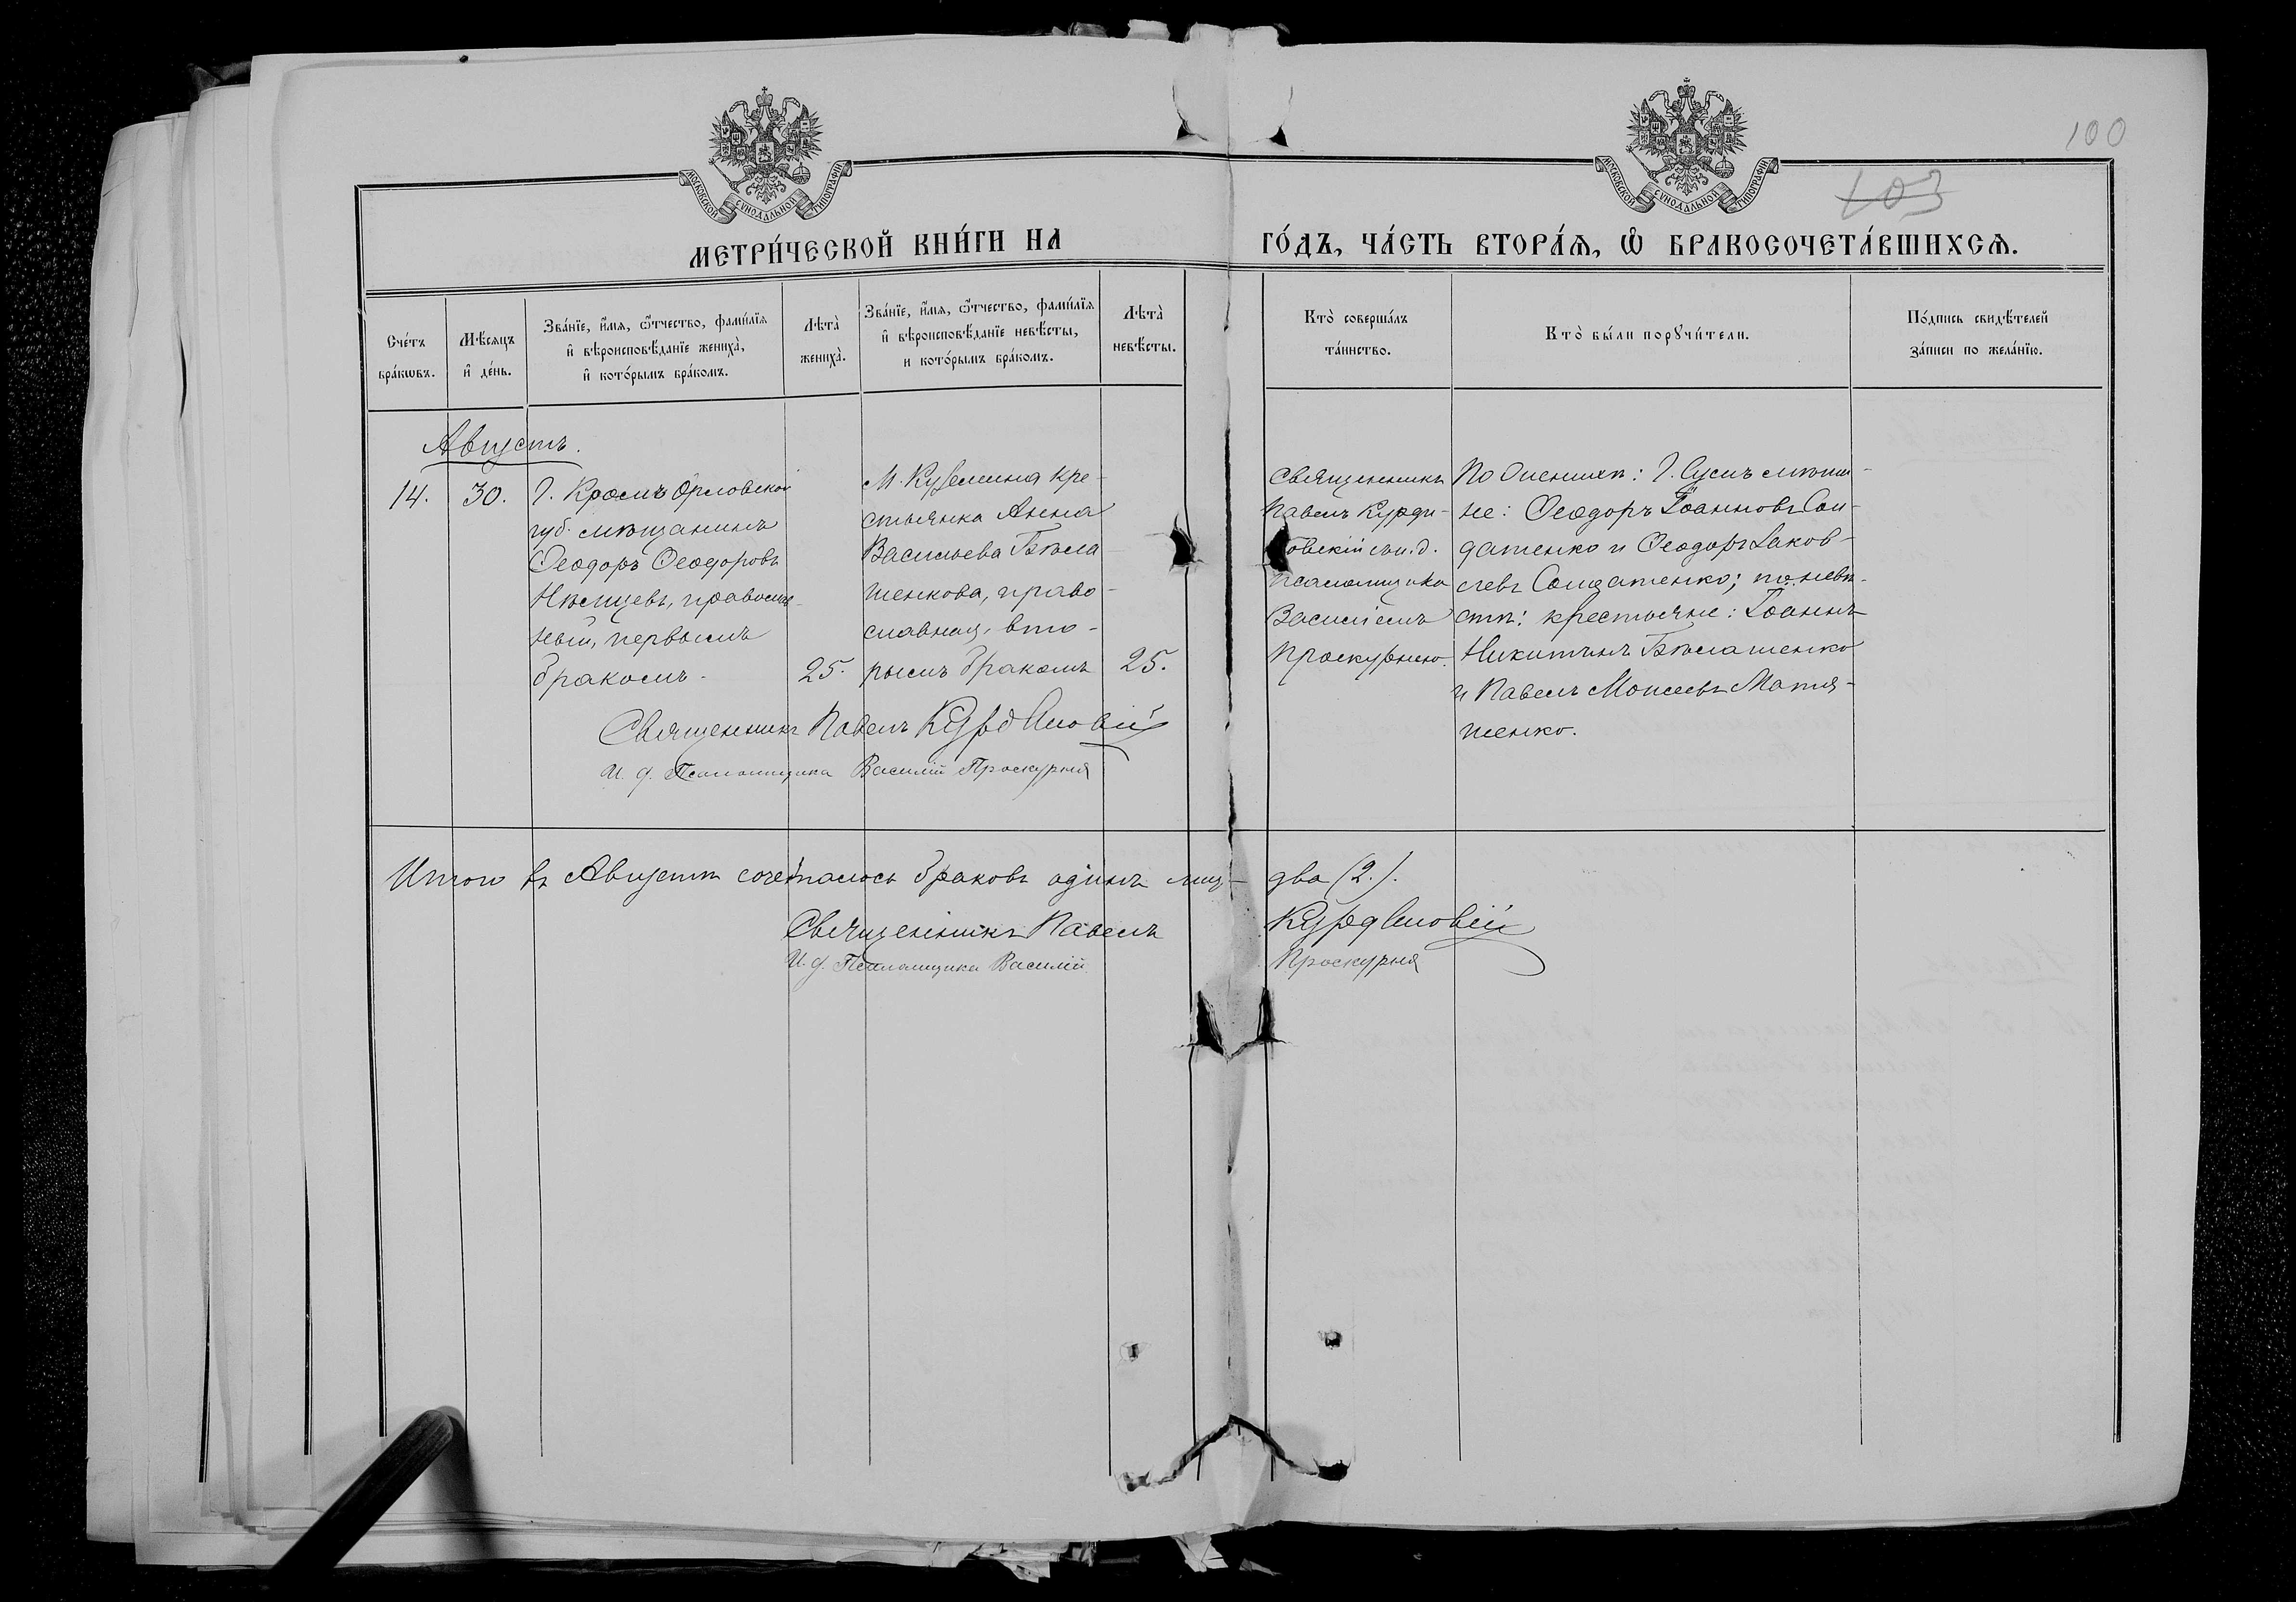 МОСКОВСКОЙ СУНОДАЛЬНОЙ ТИПОГРАФІИ
МОСКОВСКОЙ СУНОДАЛЬНОЙ ТИПОГРАФІИ
100
103
МЕТРИ́ЧЕСКОЙ КНИ́ГИ НА
ГО́ДЪ, ЧА́СТЬ ВТОРА́Ѧ, Ѡ БРАКОСОЧЕТА́ВШИХСѦ.
Сче́тъ
бра́кѡвъ.
Мѣ́сѧцъ
и҆ де́нь.
Зва́нїе, и҆́мѧ, ѻ҆́тчество, фами́лїѧ
и҆ вѣроисповѣ́данїе жениха̀,
и҆ кото́рымъ бра́комъ.
Лѣта̀
жениха̀.
Зва́нїе, и҆́мѧ, ѻ҆́тчество, фами́лїѧ
и҆ вѣроисповѣ́данїе невѣ́сты,
и кото́рымъ бра́комъ.
Лѣта̀
невѣ́сты.
Кто̀ соверша́лъ
та́инство.
Кто̀ бы́ли порꙋчи́тели.
По́дпись свидѣ́телей
за́писи по жела́нїю.
Августъ.
14.
30.
Г. Кромъ Орловской
губ. мѣщанинъ
Ѳеодоръ Ѳеодоровъ
Нѣмцевъ, православ-
ный, первымъ
бракомъ.
25.
М. Куземина кре-
стьянка Анна
Васильева Бѣла-
шенкова, право-
славная, вто-
рымъ бракомъ
25.
Священникъ
Павелъ Курди-
ловскій
псаломщика
Василіемъ
Проскурнею.
По женихѣ: Г. Сумъ мѣща-
не: Ѳеодоръ Іоанновъ Сол-
датенко и Ѳеодоръ Іаков-
левъ Солдатенко; по невѣ-
стѣ: крестьяне: Іоаннъ
Никитинъ Бѣлашенко
и Павелъ Моисеевъ Матя-
шенко.
Священникъ Павелъ Курдиловскій
И. д. Псаломщика Василій Проскурня
Итого въ Августѣ сочеталось браковъ одинъ лиц- два (2.).
Священникъ Павелъ Курдиловскій
И. д. Псаломщика Василій Проскурня